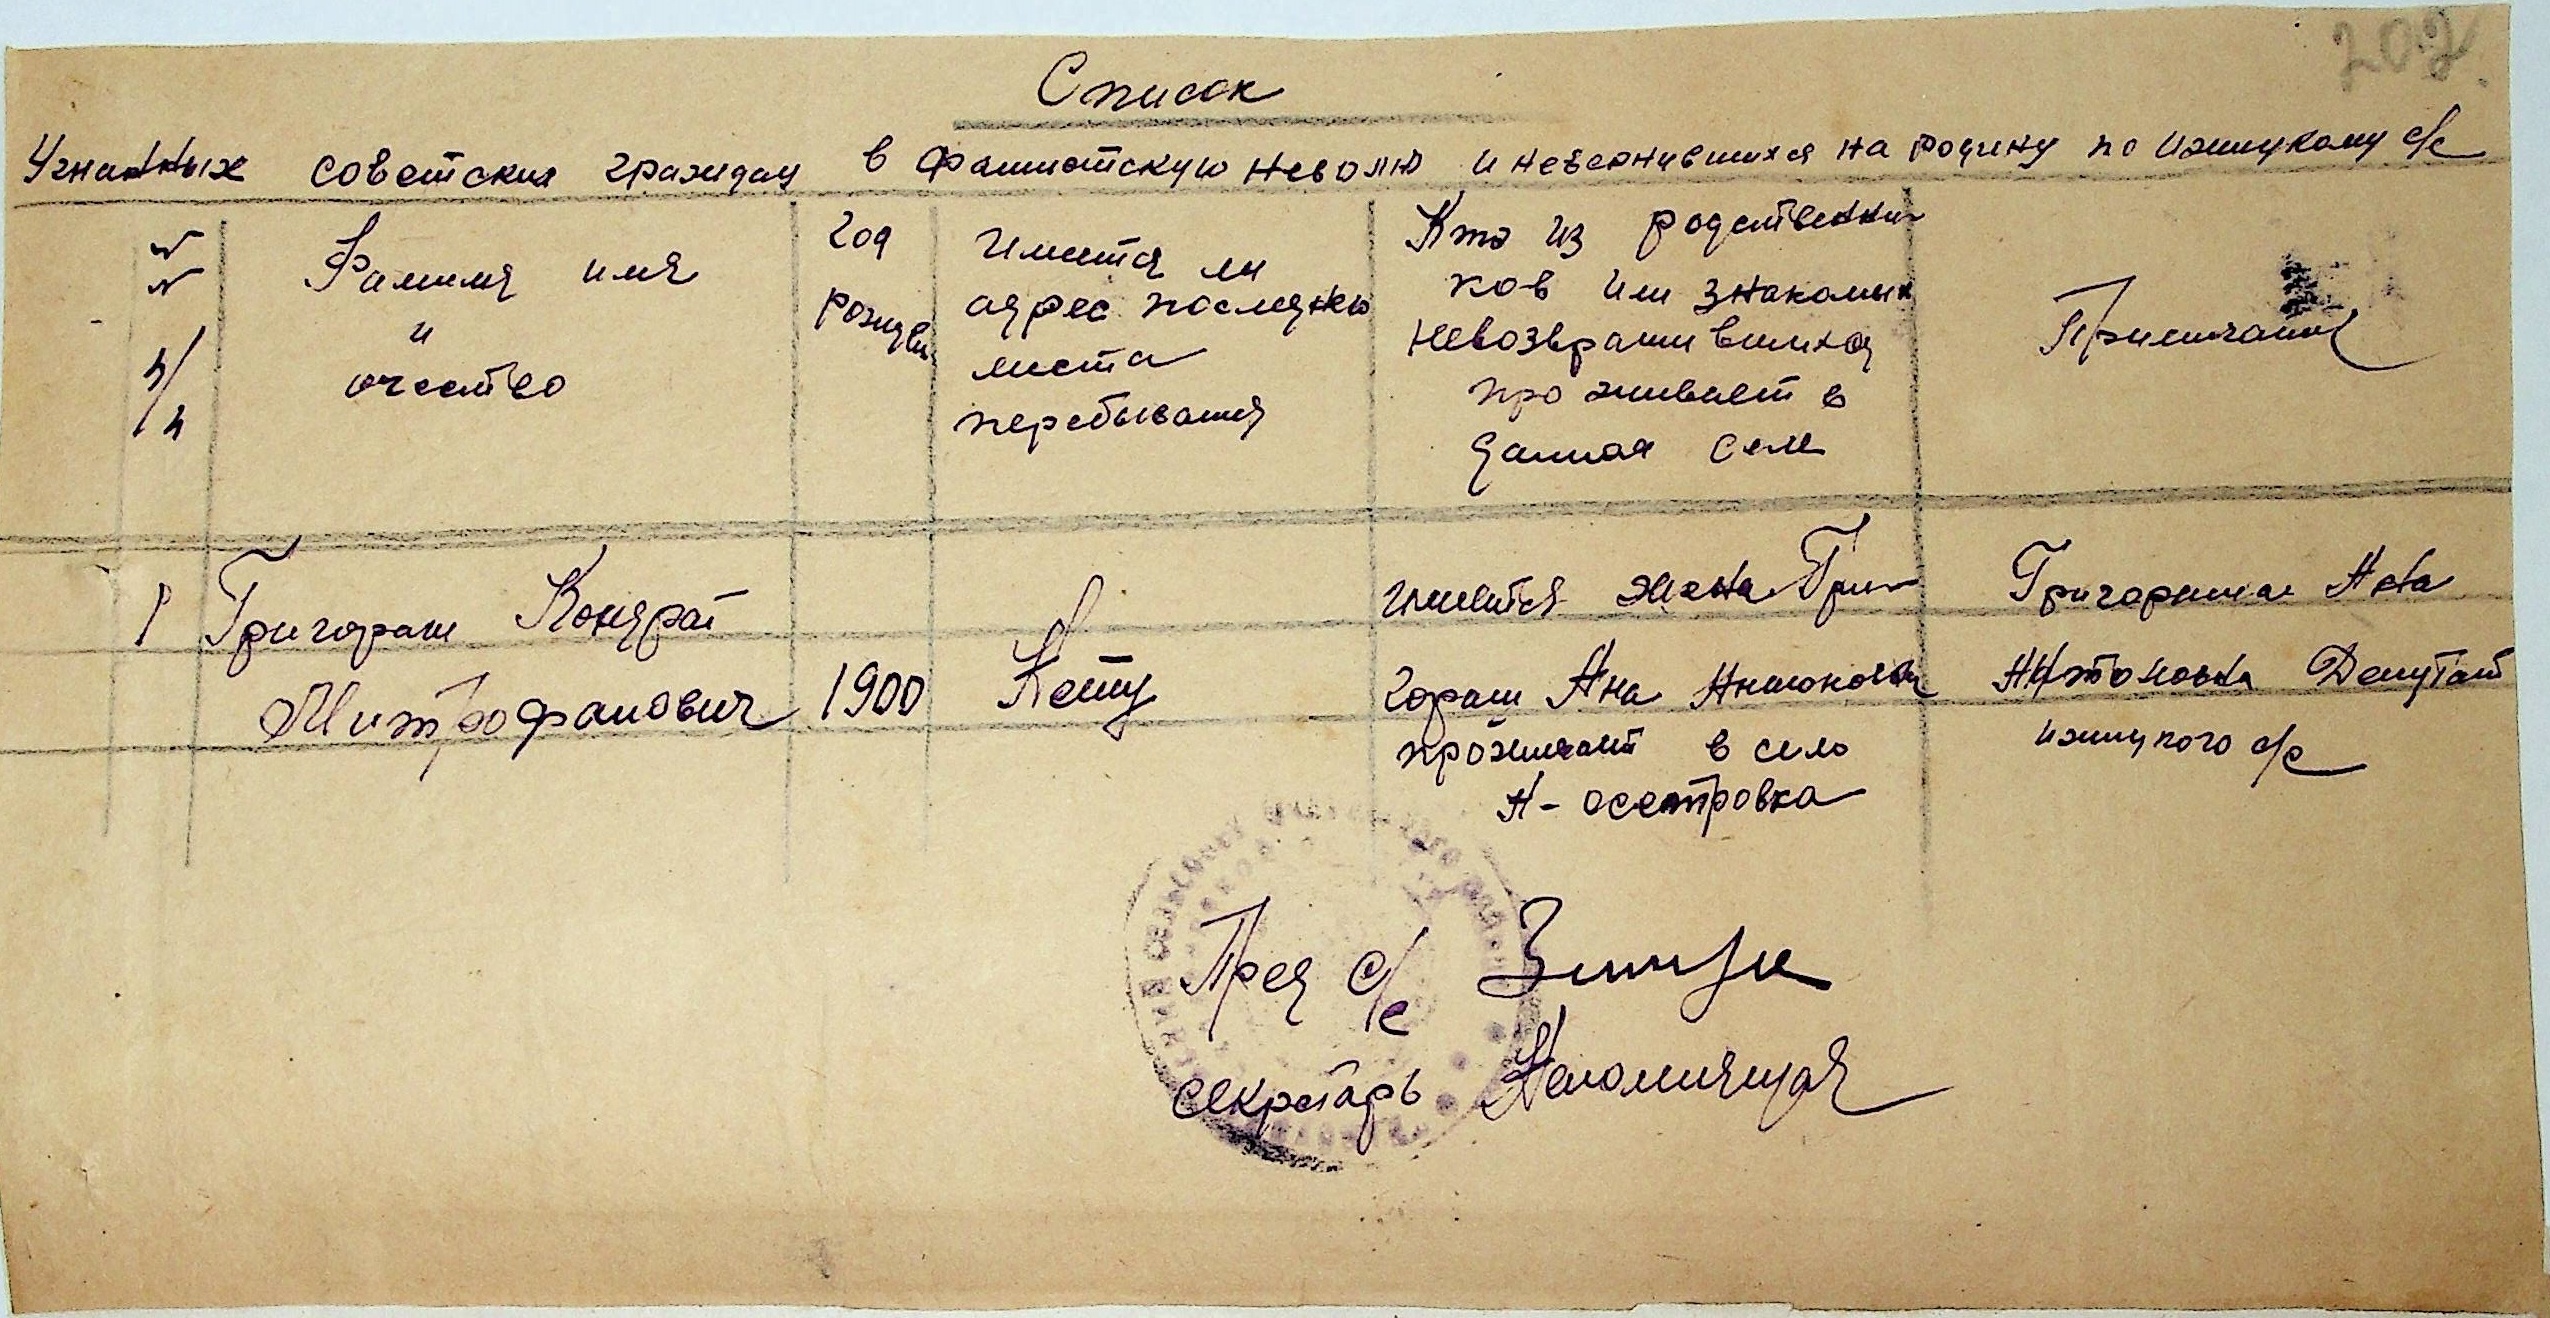 202
Список
Угнанных советских граждан в фашистскую неволю и невернувшихся на родину по Ижицкому с/с
№ № п/п
Фамиля имя
и
очество
Год
рожден
Имеется ли
адрес последнего
места
перебывания
Кто из родственни-
ков или знакомых
невозвратившихся
проживает в
данная селе
Примечание
1 Григораш Кондрат
Митрофанович
1900
Нету
имеется жена Гри-
гораш Ана Антоновна
проживает в село
Н-осетровка
Григоришна Ана
Антоновна Депутат
с/с
Пред с/с
секретарь